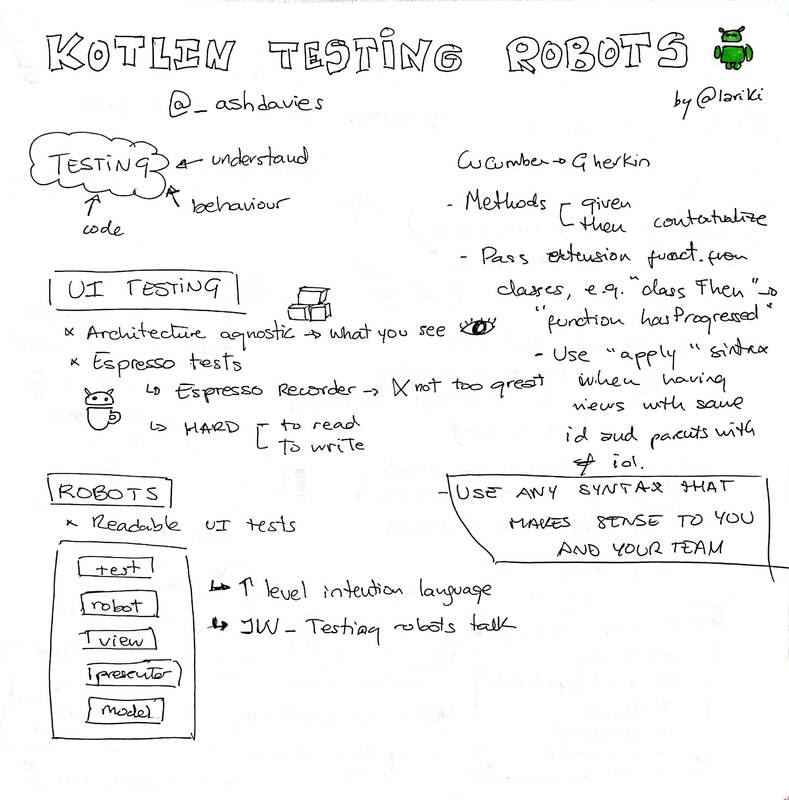 KOTLIN TESTING ROBOTS
@_ashdavies
by @lariki
TESTING
understand
behaviour
code
UI TESTING
× Architecture agnostic → what you see
× Espresso tests
↳ Espresso Recorder → X not too great
↳ HARD [ to read
to write
ROBOTS
× Readable UI tests
test
robot
view
presenter
model
↳ ↑ level intention language
↳ JW - Testing robots talk
Cucumber → Gherkin
- Methods [ given
then contextualize
- Pass extension funct. from
classes, e.g. "class Then" →
"function hasProgressed"
- Use "apply" sintax
when having
views with same
id and parents with
≠ id.
- USE ANY SYNTAX THAT
MAKES SENSE TO YOU
AND YOUR TEAM